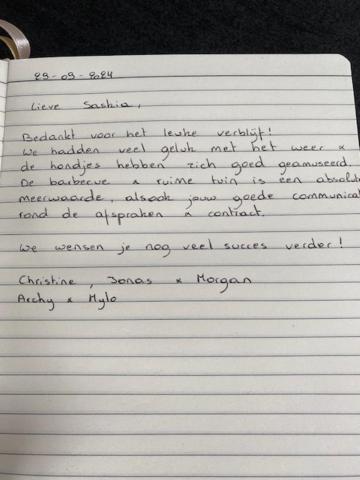 29-09-2024
Lieve Saskia,
Bedankt voor het leuke verblijf!
We hadden veel geluk met het weer &
de hondjes hebben zich goed geamuseerd.
De barbecue & ruime tuin is een absolute
meerwaarde, alsook jouw goede communicat
rond de afspraken & contract.
We wensen je nog veel succes verder!
Christine, Jonas & Morgan
Archy & Mylo